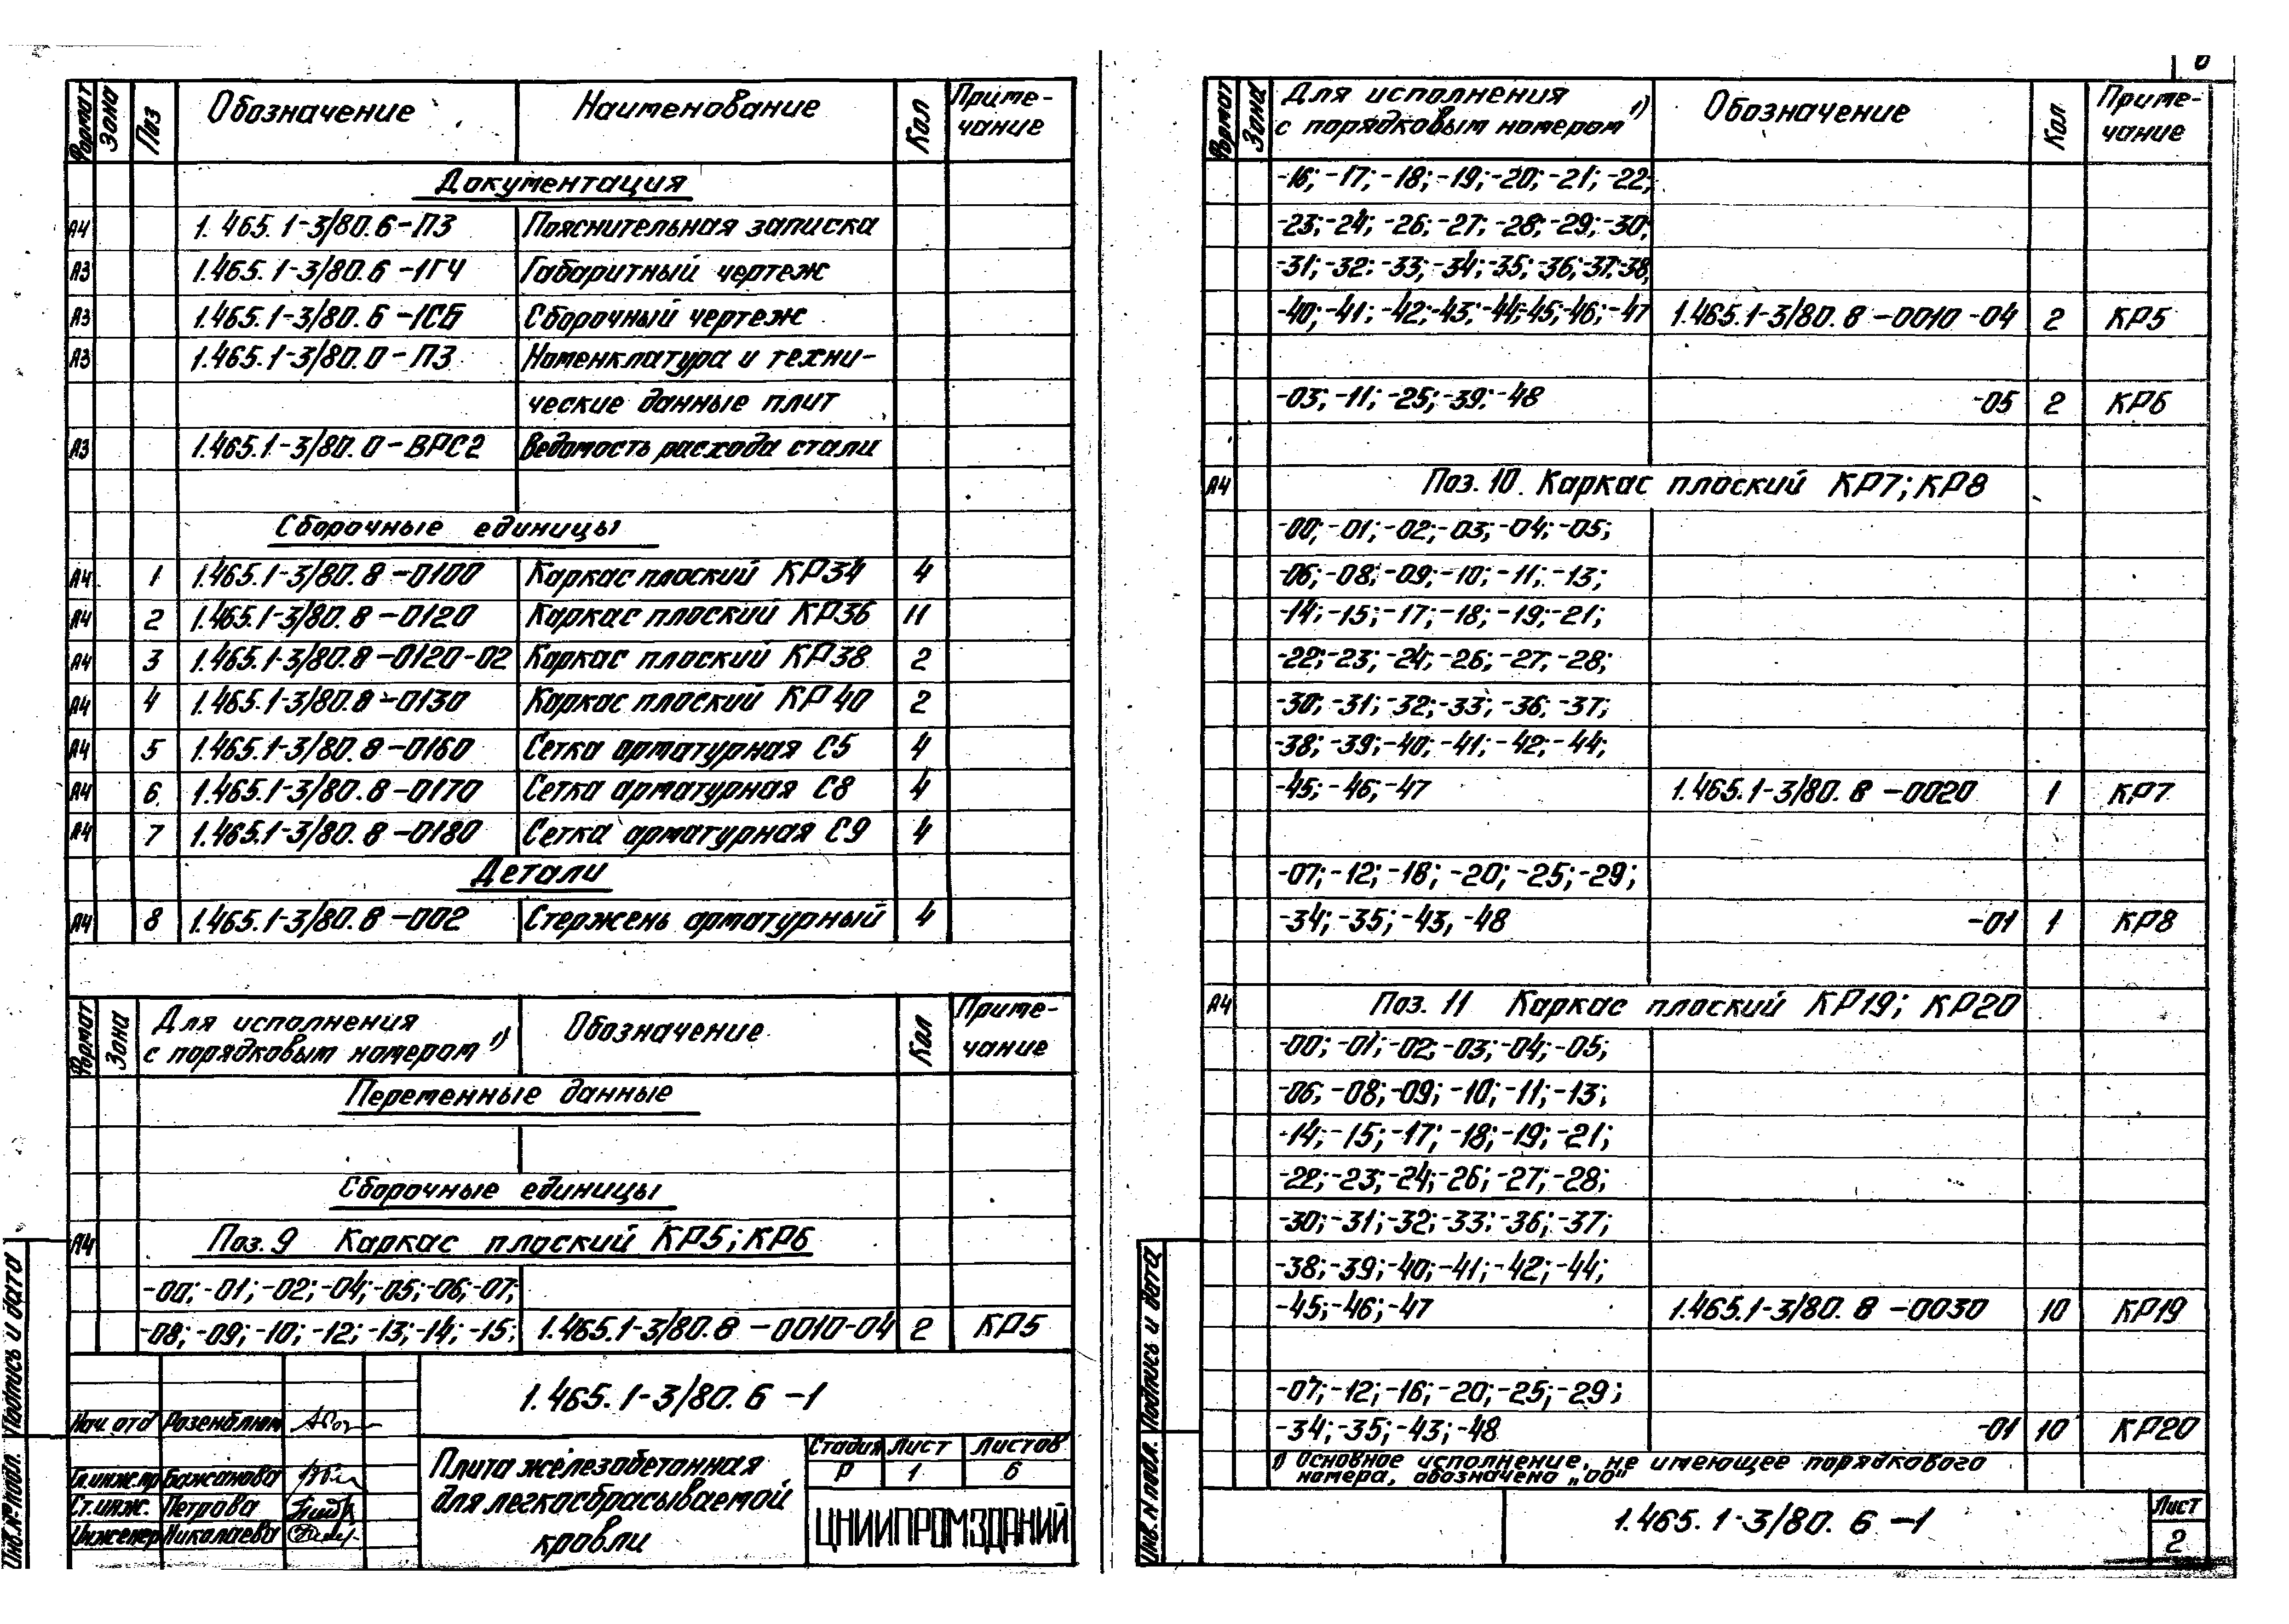 Формат Зона Поз Обозначение Наименование Кол Приме-
чание
Документация
А4 1.465.1-3/80.6-ПЗ Пояснительная записка
А3 1.465.1-3/80.6-1ГЧ Габаритный чертеж
А3 1.465.1-3/80.6-1СБ Сборочный чертеж
А3 1.465.1-3/80.0-ПЗ Номенклатура и техни-
ческие данные плит
А3 1.465.1-3/80.0-ВРС2 Ведомость расхода стали
Сборочные единицы
А4 1 1.465.1-3/80.8-0100 Каркас плоский КР34 4
А4 2 1.465.1-3/80.8-0120 Каркас плоский КР36 11
А4 3 1.465.1-3/80.8-0120-02 Каркас плоский КР38 2
А4 4 1.465.1-3/80.8-0130 Каркас плоский КР40 2
А4 5 1.465.1-3/80.8-0160 Сетка арматурная С5 4
А4 6 1.465.1-3/80.8-0170 Сетка арматурная С8 4
А4 7 1.465.1-3/80.8-0180 Сетка арматурная С9 4
Детали
А4 8 1.465.1-3/80.8-002 Стержень арматурный 4
Формат Зона Для исполнения
с порядковым номером 1) Обозначение Кол Приме-
чание
Переменные данные
Сборочные единицы
А4 Поз. 9 Каркас плоский КР5; КР6
-00; -01; -02; -04; -05; -06; -07;
-08; -09; -10; -12; -13; -14; -15; 1.465.1-3/80.8-0010-04 2 КР5
1.465.1-3/80.6-1
Нач. отд Розенблюм
Гл.инж.пр Бажанова
Ст.инж. Петрова
Инженер Николаева
Плита железобетонная
для легкосбрасываемой
кровли
Стадия Лист Листов
Р 1 6
ЦНИИПРОМЗДАНИЙ
Инв.№ подл. Подпись и дата
Формат Зона Для исполнения
с порядковым номером 1) Обозначение Кол Приме-
чание
-16; -17; -18; -19; -20; -21; -22;
-23; -24; -26; -27; -28; -29; -30;
-31; -32; -33; -34; -35; -36; -37; -38;
-40; -41; -42; -43; -44; -45; -46; -47 1.465.1-3/80.8-0010-04 2 КР5
-03; -11; -25; -39; -48 -05 2 КР6
А4 Поз. 10. Каркас плоский КР7; КР8
-00; -01; -02; -03; -04; -05;
-06; -08; -09; -10; -11; -13;
-14; -15; -17; -18; -19; -21;
-22; -23; -24; -26; -27; -28;
-30; -31; -32; -33; -36; -37;
-38; -39; -40; -41; -42; -44;
-45; -46; -47 1.465.1-3/80.8-0020 1 КР7
-07; -12; -16; -20; -25; -29;
-34; -35; -43, -48 -01 1 КР8
А4 Поз. 11 Каркас плоский КР19; КР20
-00; -01; -02; -03; -04; -05;
-06; -08; -09; -10; -11; -13;
-14; -15; -17; -18; -19; -21;
-22; -23; -24; -26; -27; -28;
-30; -31; -32; -33; -36; -37;
-38; -39; -40; -41; -42; -44;
-45; -46; -47 1.465.1-3/80.8-0030 10 КР19
-07; -12; -16; -20; -25; -29;
-34; -35; -43; -48 -01 10 КР20
1) Основное исполнение, не имеющее порядкового
номера, обозначено „00"
1.465.1-3/80.6-1
Лист
2
Инв.N подл. Подпись и дата